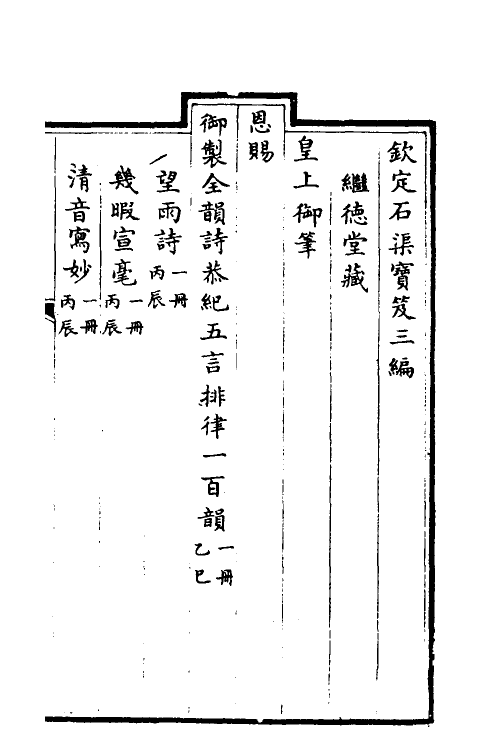 欽定石渠寶笈三編
繼德堂藏
皇上御筆
恩賜
御製全韻詩恭紀五言排律一百韻一冊乙巳
望雨詩一冊丙辰
幾暇宣毫一冊丙辰
清音寫妙一冊丙辰